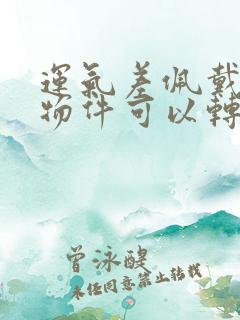 運氣差佩戴
物件可以轉
曾泳醍
未經同意禁止轉載